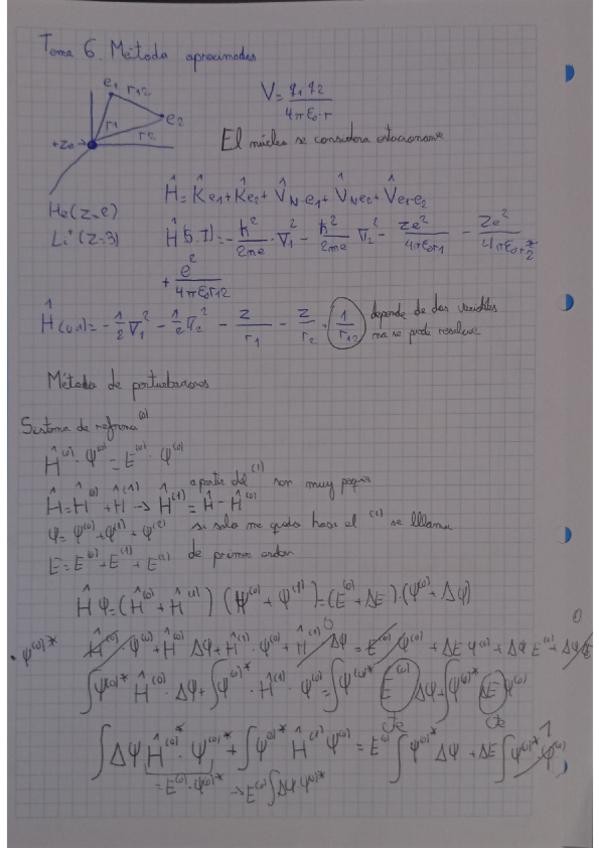 Tema 6. Método aproximados
e1 r12
V = q1 q2 / 4πε0·r
r1 r2 e2
+Ze
El núcleo se considera estacionario
Ĥ = K̂e1 + K̂e2 + V̂N-e1 + V̂Ne2 + V̂e1-e2
He (Z=2)
Li⁺ (Z=3) Ĥ(S.I) = - ħ²/2me · ∇1² - ħ²/2me ∇2² - Ze²/4πε0r1 - Ze²/4πε0r2
+ e²/4πε0r12
Ĥ(u.a) = - 1/2 ∇1² - 1/2 ∇2² - Z/r1 - Z/r2 + 1/r12 depende de dos variables
no se puede resolver
Método de perturbaciones
Sistema de referencia (0)
Ĥ(0) · φ(0) = E(0) · φ(0)
Ĥ = Ĥ(0) + Ĥ(1) → Ĥ(1) = Ĥ - Ĥ(0) a partir del (1) son muy peque
φ = φ(0) + φ(1) + φ(2) si solo me quedo hasta el (1) se llama
E = E(0) + E(1) + E(2) de primer orden
Ĥ φ = (Ĥ(0) + Ĥ(1)) (φ(0) + φ(1)) = (E(0) + ΔE) · (φ(0) + Δφ)
· φ(0)* Ĥ(0) φ(0) + Ĥ(0) Δφ + Ĥ(1) · φ(0) + Ĥ(1) Δφ 0 = E(0) φ(0) + ΔE φ(0) + Δφ E(0) + Δφ ΔE 0
∫φ(0)* Ĥ(0) · Δφ + ∫φ(0)* · Ĥ(1) · φ(0) = ∫φ(0)* E(0) Δφ + ∫φ(0)* ΔE φ(0)
cte cte
∫Δφ Ĥ(0)* · φ(0)* + ∫φ(0)* Ĥ(1) φ(0) = E(0) ∫φ(0)* Δφ + ΔE ∫φ(0)* φ(0) 1
= E(0) · φ(0)* → E(0) ∫Δφ · φ(0)*